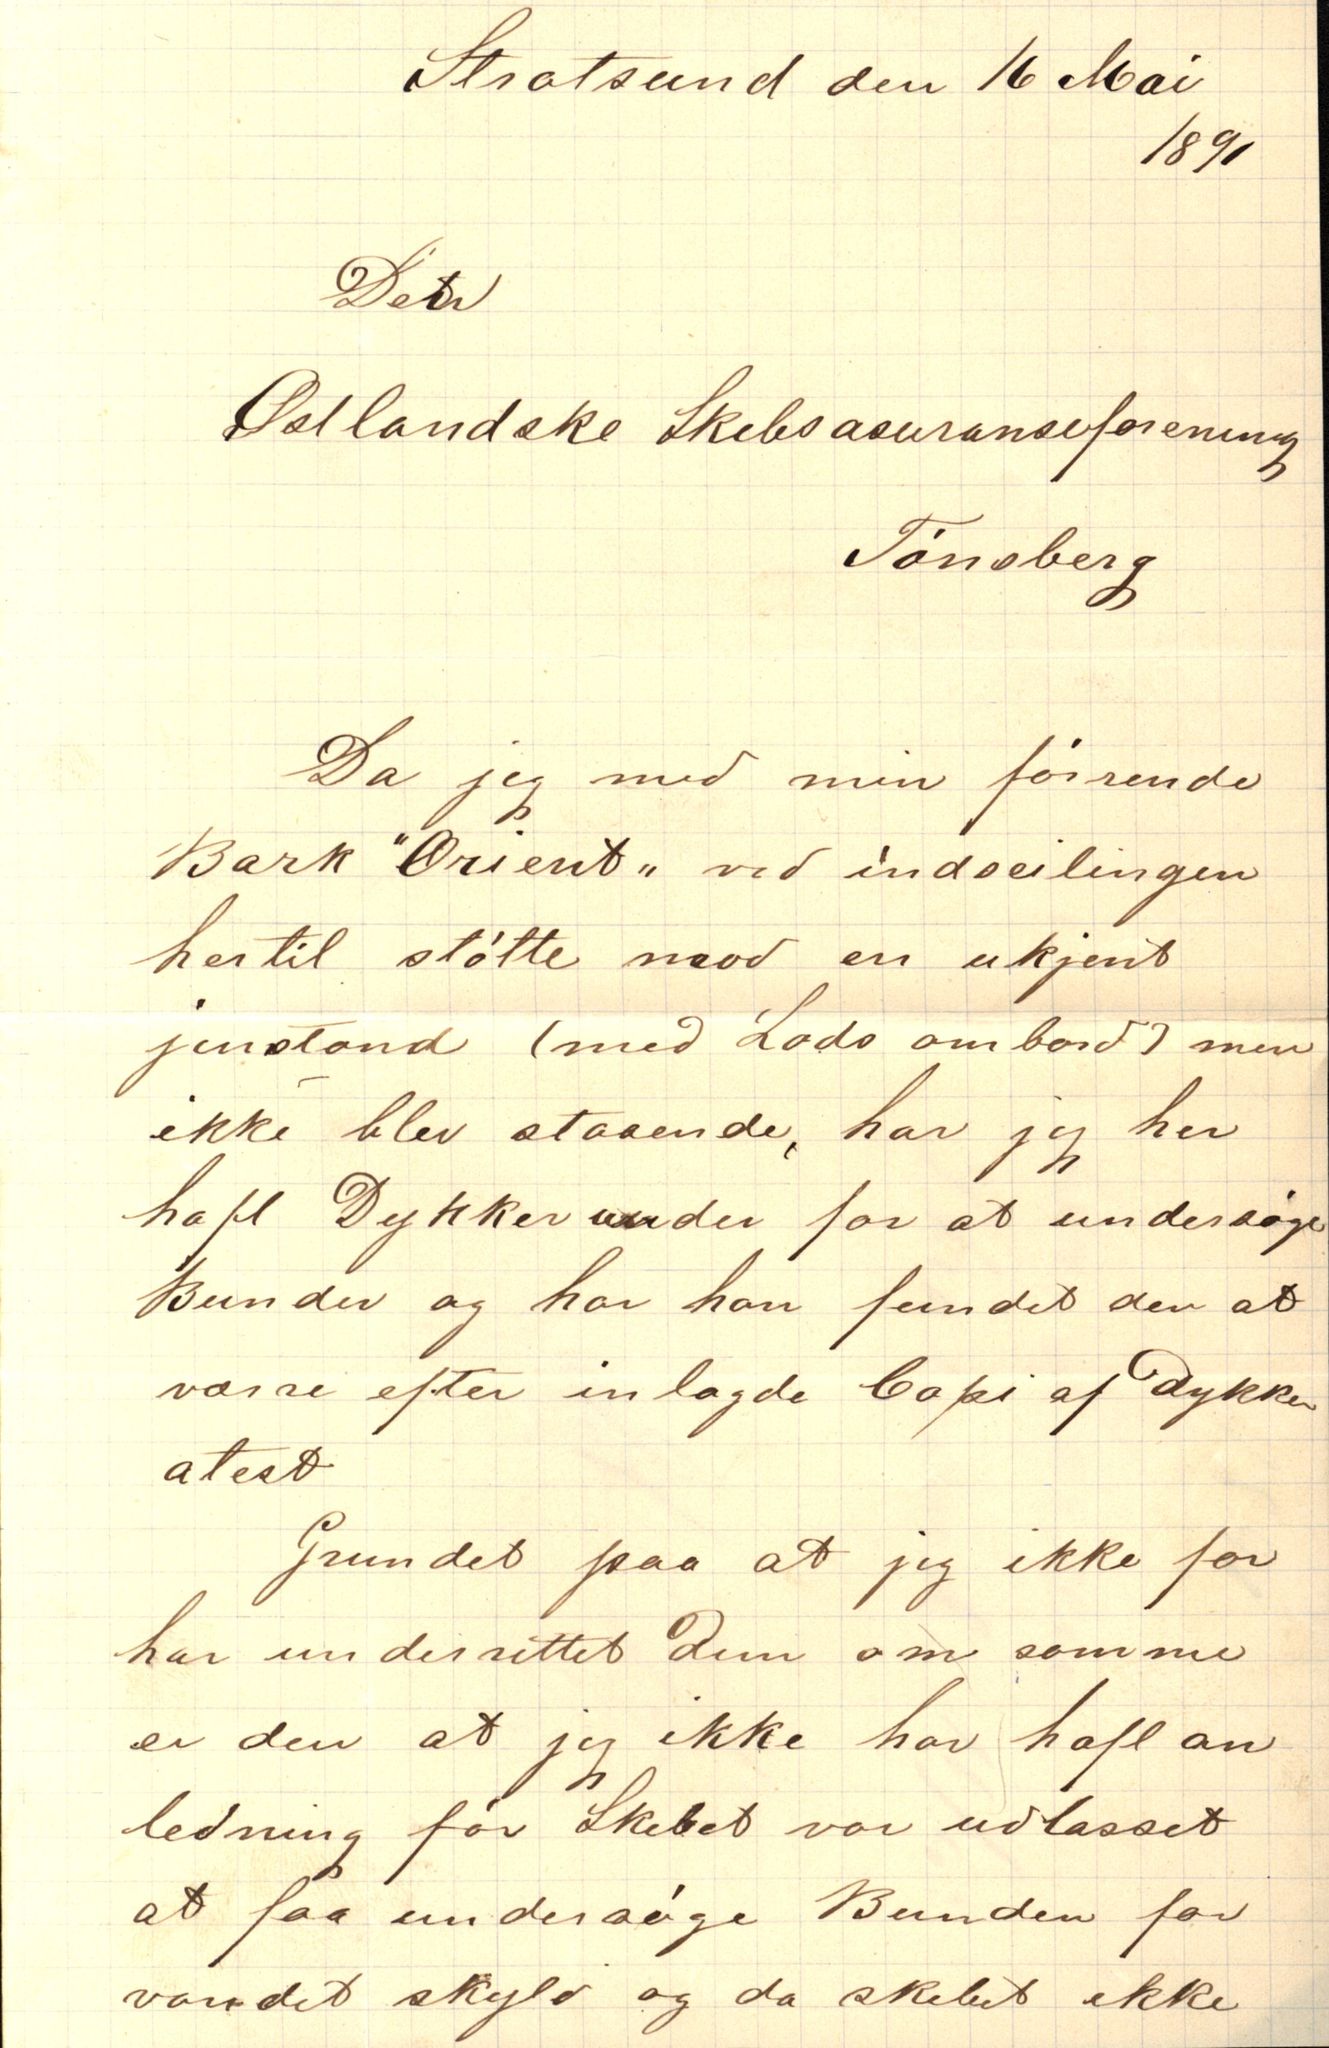 Stratsund den 16 Mai
1891
Det
Østlandske Skebsasuranseforening
Tónsberg
Da jeg med min fórrende
Bark "Orient" ved indseilingen
hertil stótte mod en ukjent
jenstand (med Lods ombord) men
ikke blev staaende, har jeg her
haft Dykker under for at undersóge
Bunden og har han fundet den at
værre efter inlagde Copi af Dykker
atest
Grundet paa at jeg ikke for
har underrettet Dem om samme
er den at jeg ikke har haft an
ledning fór Skebet var udlasset
at faa undersóge Bunden for
vandet skyld og da skebet ikke